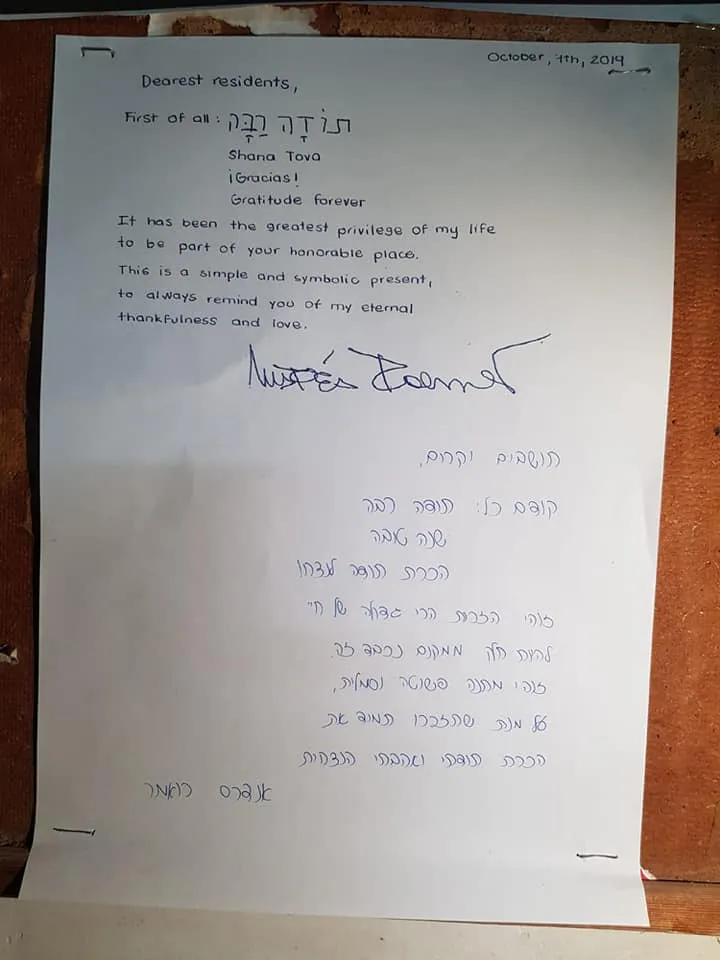 October, 7th, 2019
Dearest residents,
First of all : תוֹדָה רַבָּה
Shana Tova
¡Gracias!
Gratitude forever
It has been the greatest privilege of my life
to be part of your honorable place.
This is a simple and symbolic present,
to always remind you of my eternal
thankfulness and love.
תושבים יקרים,
קודם כל: תודה רבה
שנה טובה
הכרת תודה לנצח!
זוהי הזכות הכי גדולה של חיי
להיות חלק ממקום נכבד זה.
זוהי מתנה פשוטה וסמלית,
על מנת שתזכרו תמיד את
הכרת תודתי ואהבתי הנצחית
אנדרס רואמר